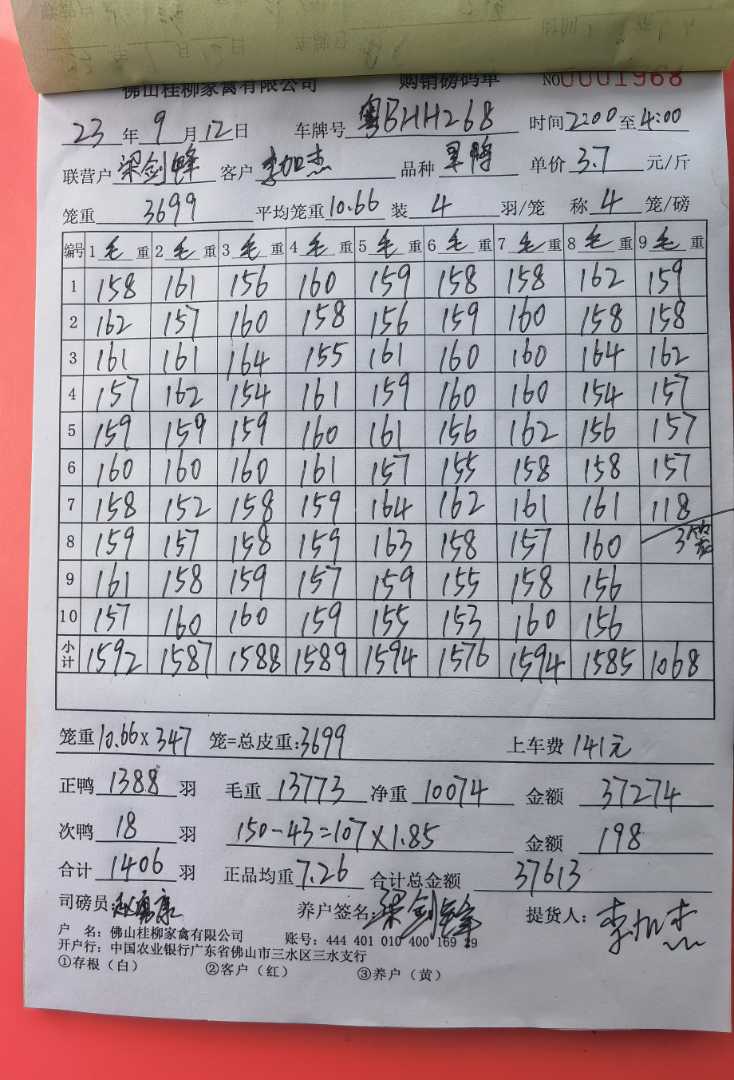 佛山桂柳家禽有限公司 购销磅码单 NO0001968
23年9月12日 车牌号 粤BHH268 时间2:00至4:00
联营户 梁剑锋 客户 李加杰 品种 单价 3.7 元/斤
笼重 3699 平均笼重10.66 装 4 羽/笼 称 4 笼/磅
编号 1毛重 2毛重 3毛重 4毛重 5毛重 6毛重 7毛重 8毛重 9毛重
1 158 161 156 160 159 158 158 162 159
2 162 157 160 158 156 159 160 158 158
3 161 161 164 155 161 160 160 164 162
4 157 162 154 161 159 160 160 154 157
5 159 159 159 160 161 156 162 156 157
6 160 160 160 161 157 155 158 158 157
7 158 152 158 159 164 162 161 161 118
8 159 157 158 159 163 158 157 160 3笼
9 161 158 159 157 159 155 158 156
10 157 160 160 159 155 153 160 156
小计 1592 1587 1588 1589 1594 1576 1594 1585 1068
笼重10.66×347 笼=总皮重:3699 上车费 141元
正鸭 1388 羽 毛重 13773 净重 10074 金额 37274
次鸭 18 羽 150-43=107×1.85 金额 198
合计 1406 羽 正品均重7.26 合计总金额 37613
司磅员: 养户签名:梁剑锋 提货人:李加杰
户 名:佛山桂柳家禽有限公司 账号:444 401 010 400 169 29
开户行:中国农业银行广东省佛山市三水区三水支行
①存根(白) ②客户(红) ③养户(黄)